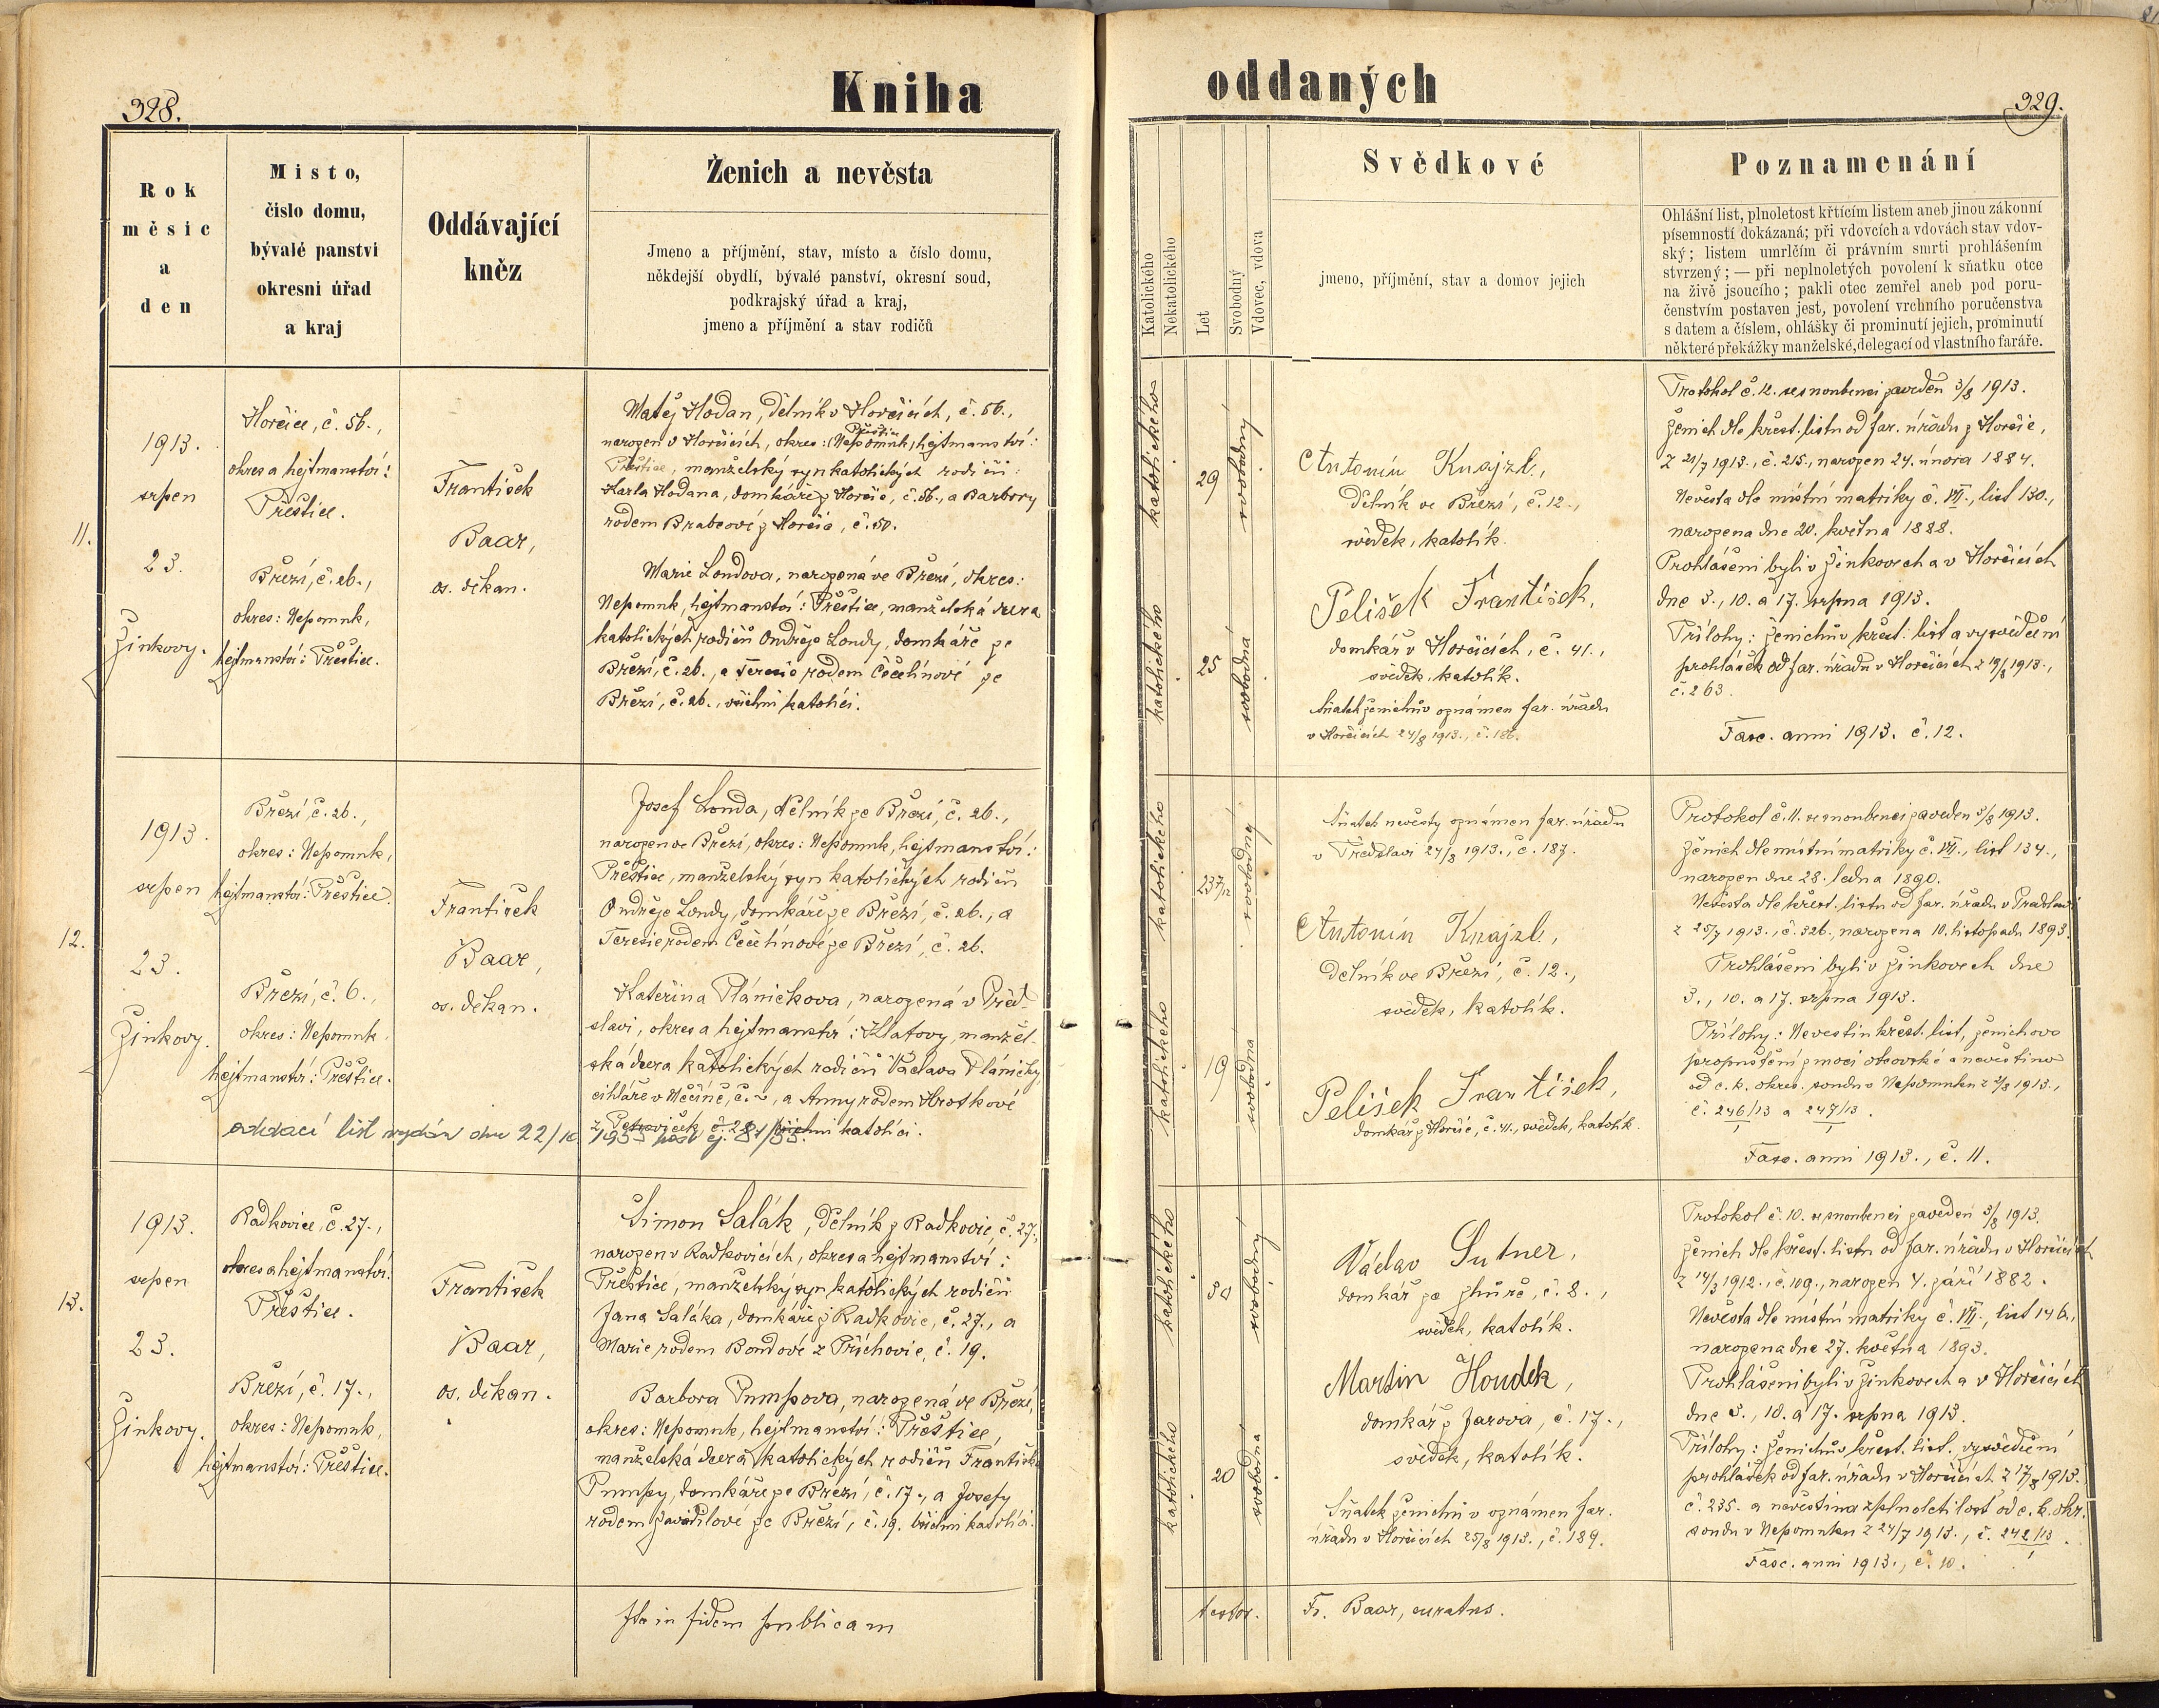 328.
Kniha
Rok
měsíc
a
den
Misto,
čislo domu,
bývalé panství
okresní úřad
a kraj
Oddávající
kněz
Ženich a nevěsta
Jmeno a příjmění, stav, místo a číslo domu,
někdejší obydlí, bývalé panství, okresní soud,
podkrajský úřad a kraj,
jmeno a příjmění a stav rodičů
11.
1913.
srpen
23.
Žinkovy.
Horčice, č. 56.,
okres a hejtmanství:
Přeštice.
Březí, č. 26.,
okres: Nepomuk,
hejtmanství: Přeštice.
František
Baar,
os. děkan.
Matěj Hodan, dělník v Horčicích, č. 56.,
narozen v Horčicích, okres: (Nepomuk) Přeštice, hejtmanství:
Přeštice, manželský syn katolických rodičů:
Karla Hodana, domkáře z Horčic, č. 56., a Barbory
rodem Brabcové z Horčic, č. 50.
Marie Londova, narozená ve Březí, okres:
Nepomuk, hejtmanství: Přeštice, manželská dcera
katolických rodičů Ondřeje Londy, domkáře ze
Březí, č. 26., a Terezie rodem Čečelínové ze
Březí, č. 26., všichni katolíci.
12.
1913.
srpen
23.
Žinkovy.
Březí, č. 26.,
okres: Nepomuk,
hejtmanství: Přeštice.
Březí, č. 6.,
okres: Nepomuk,
hejtmanství: Přeštice.
František
Baar,
os. děkan.
Josef Londa, dělník ze Březí, č. 26.,
narozen ve Březí, okres: Nepomuk, hejtmanství:
Přeštice, manželský syn katolických rodičů
Ondřeje Londy, domkáře ze Březí, č. 26., a
Terezie rodem Čečelínové ze Březí, č. 26.
Kateřina Pláničkova, narozená v Před-
slavi, okres a hejtmanství: Klatovy, manžel-
ská dcera katolických rodičů Václava Pláničky,
cihláře v Měčíně, č. ~, a Anny rodem Hrotkové
z č. 28., všichni katolíci.
oddací list vydán dne 22/10 1933
13.
1913.
srpen
23.
Žinkovy.
Radkovice, č. 27.,
okres a hejtmanství:
Přeštice.
Březí, č. 17.,
okres: Nepomuk,
hejtmanství: Přeštice.
František
Baar,
os. děkan.
Šimon Salák, dělník z Radkovic, č. 27.,
narozen v Radkovicích, okres a hejtmanství:
Přeštice, manželský syn katolických rodičů
Jana Saláka, domkáře z Radkovic, č. 27., a
Marie rodem Bondové z Příchovic, č. 19.
Barbora Pumpova, narozená ve Březí,
okres: Nepomuk, hejtmanství: Přeštice,
manželská dcera katolických rodičů Františka
Pumpy, domkáře ze Březí, č. 17., a Josefy
rodem Zavadilové ze Březí, č. 19. všichni katolíci.
Ita in fidem publicam
oddaných
329.
Katolického
Nekatolického
Let
Svobodný
Vdovec, vdova
Svědkové
jmeno, příjmění, stav a domov jejich
Poznamenání
Ohlášní list, plnoletost křtícím listem aneb jinou zákonní
písemností dokázaná; při vdovcích a vdovách stav vdov-
ský; listem umrlčím či právním smrti prohlášením
stvrzený; — při neplnoletých povolení k sňatku otce
na živě jsoucího; pakli otec zemřel aneb pod poru-
čenstvím postaven jest, povolení vrchního poručenstva
s datem a číslem, ohlášky či prominutí jejich, prominutí
některé překážky manželské, delegací od vlastního faráře.
katolického
29
svobodný
katolického
25
svobodná
Antonín Knajzl,
dělník ve Březí, č. 12.,
svědek, katolík.
Pelíšek František,
domkář v Horčicích, č. 41.,
svědek, katolík.
Sňatek ženichův oznámen far. úřadu
v Horčicích 24/8 1913., č. 186.
Protokol č. 12. se snoubenci zaveden 3/8 1913.
Ženich dle křest. listu od far. úřadu z Horčic,
z 21/7 1913., č. 215., narozen 24. února 1884.
Nevěsta dle místní matriky č. VII., list 130.,
narozena dne 20. května 1888.
Prohlášeni byli v Žinkovech a v Horčicích
dne 3., 10. a 17. srpna 1913.
Přílohy: ženichův křest. list a vysvědčení
prohlášek od far. úřadu v Horčicích z 19/8 1913.,
č. 263.
Fasc. anni 1913. č. 12.
katolického
23 7/12
svobodný
katolického
19
svobodna
Sňatek nevěsty oznámen far. úřadu
v Předslavi 24/8 1913., č. 187.
Antonín Knajzl,
dělník ve Březí, č. 12.,
svědek, katolík.
Pelíšek František,
domkář z Horčic, č. 41., svědek, katolík.
Protokol č. 11. se snoubenci zaveden 3/8 1913.
Ženich dle místní matriky č. VII., list 134.,
narozen dne 28. ledna 1890.
Nevěsta dle křest. listu od far. úřadu v Předslavi
z 25/7 1913., č. 326., narozena 10. listopadu 1893.
Prohlášeni byli v Žinkovech dne
3., 10. a 17. srpna 1913.
Přílohy: Nevěstin křest. list, ženichovo
propuštění z moci otcovské a nevěstino
od c. k. okres. soudu v Nepomuku z 2/8 1913.,
č. 246/13 a 247/13.
1 1
Fasc. anni 1913., č. 11.
katolického
30
svobodný
katolického
20
svobodná
Václav Sutner,
domkář ze Zhůře, č. 8.,
svědek, katolík.
Martin Houdek,
domkář z Jarova, č. 17.,
svědek, katolík.
Sňatek ženichův oznámen far.
úřadu v Horčicích 25/8 1913., č. 189.
Protokol č. 10. se snoubenci zaveden 3/8 1913.
Ženich dle křest. listu od far. úřadu v Horčicích
z 14/3 1912., č. 109., narozen 4. září 1882.
Nevěsta dle místní matriky č. VII., list 146.,
narozena dne 27. května 1893.
Prohlášeni byli v Žinkovech a v Horčicích
dne 3., 10. a 17. srpna 1913.
Přílohy: Ženichův křest. list. vysvědčení
prohlášek od far. úřadu v Horčicích z 17/8 1913.
č. 235. a nevěstina zplnoletilost od c. k. okr.
soudu v Nepomuku z 24/7 1913., č. 242/13.
1
Fasc. anni 1913., č. 10.
testor.
Fr. Baar, curatus.